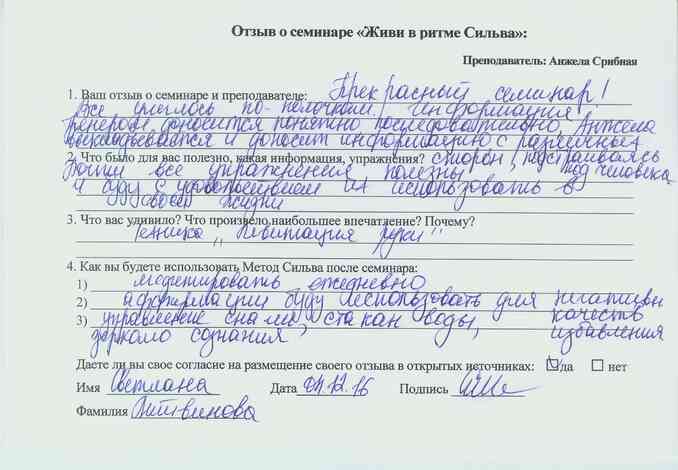 Отзыв о семинаре «Живи в ритме Сильва»:
Преподаватель: Анжела Срибная
1. Ваш отзыв о семинаре и преподавателе: Прекрасный семинар!
Все улеглось по-полочкам. Информация
тренером доносится понятно последовательно, Анжела
выкладывается и доносит информацию с различных
2. Что было для вас полезно, какая информация, упражнения? сторон, подстраиваясь
Почти все упражнения полезны, под человека
и буду с удовольствием их использовать в
своей жизни
3. Что вас удивило? Что произвело наибольшее впечатление? Почему?
Техника „Левитация руки"
4. Как вы будете использовать Метод Сильва после семинара:
1) медитировать ежедневно
2) аффирмации буду использовать для негативн
3) управление снами, стакан воды, качеств
зеркало сознания, избавления
Даете ли вы свое согласие на размещение своего отзыва в открытых источниках: да нет
Имя Светлана Дата 04.12.16 Подпись
Фамилия Литвинова